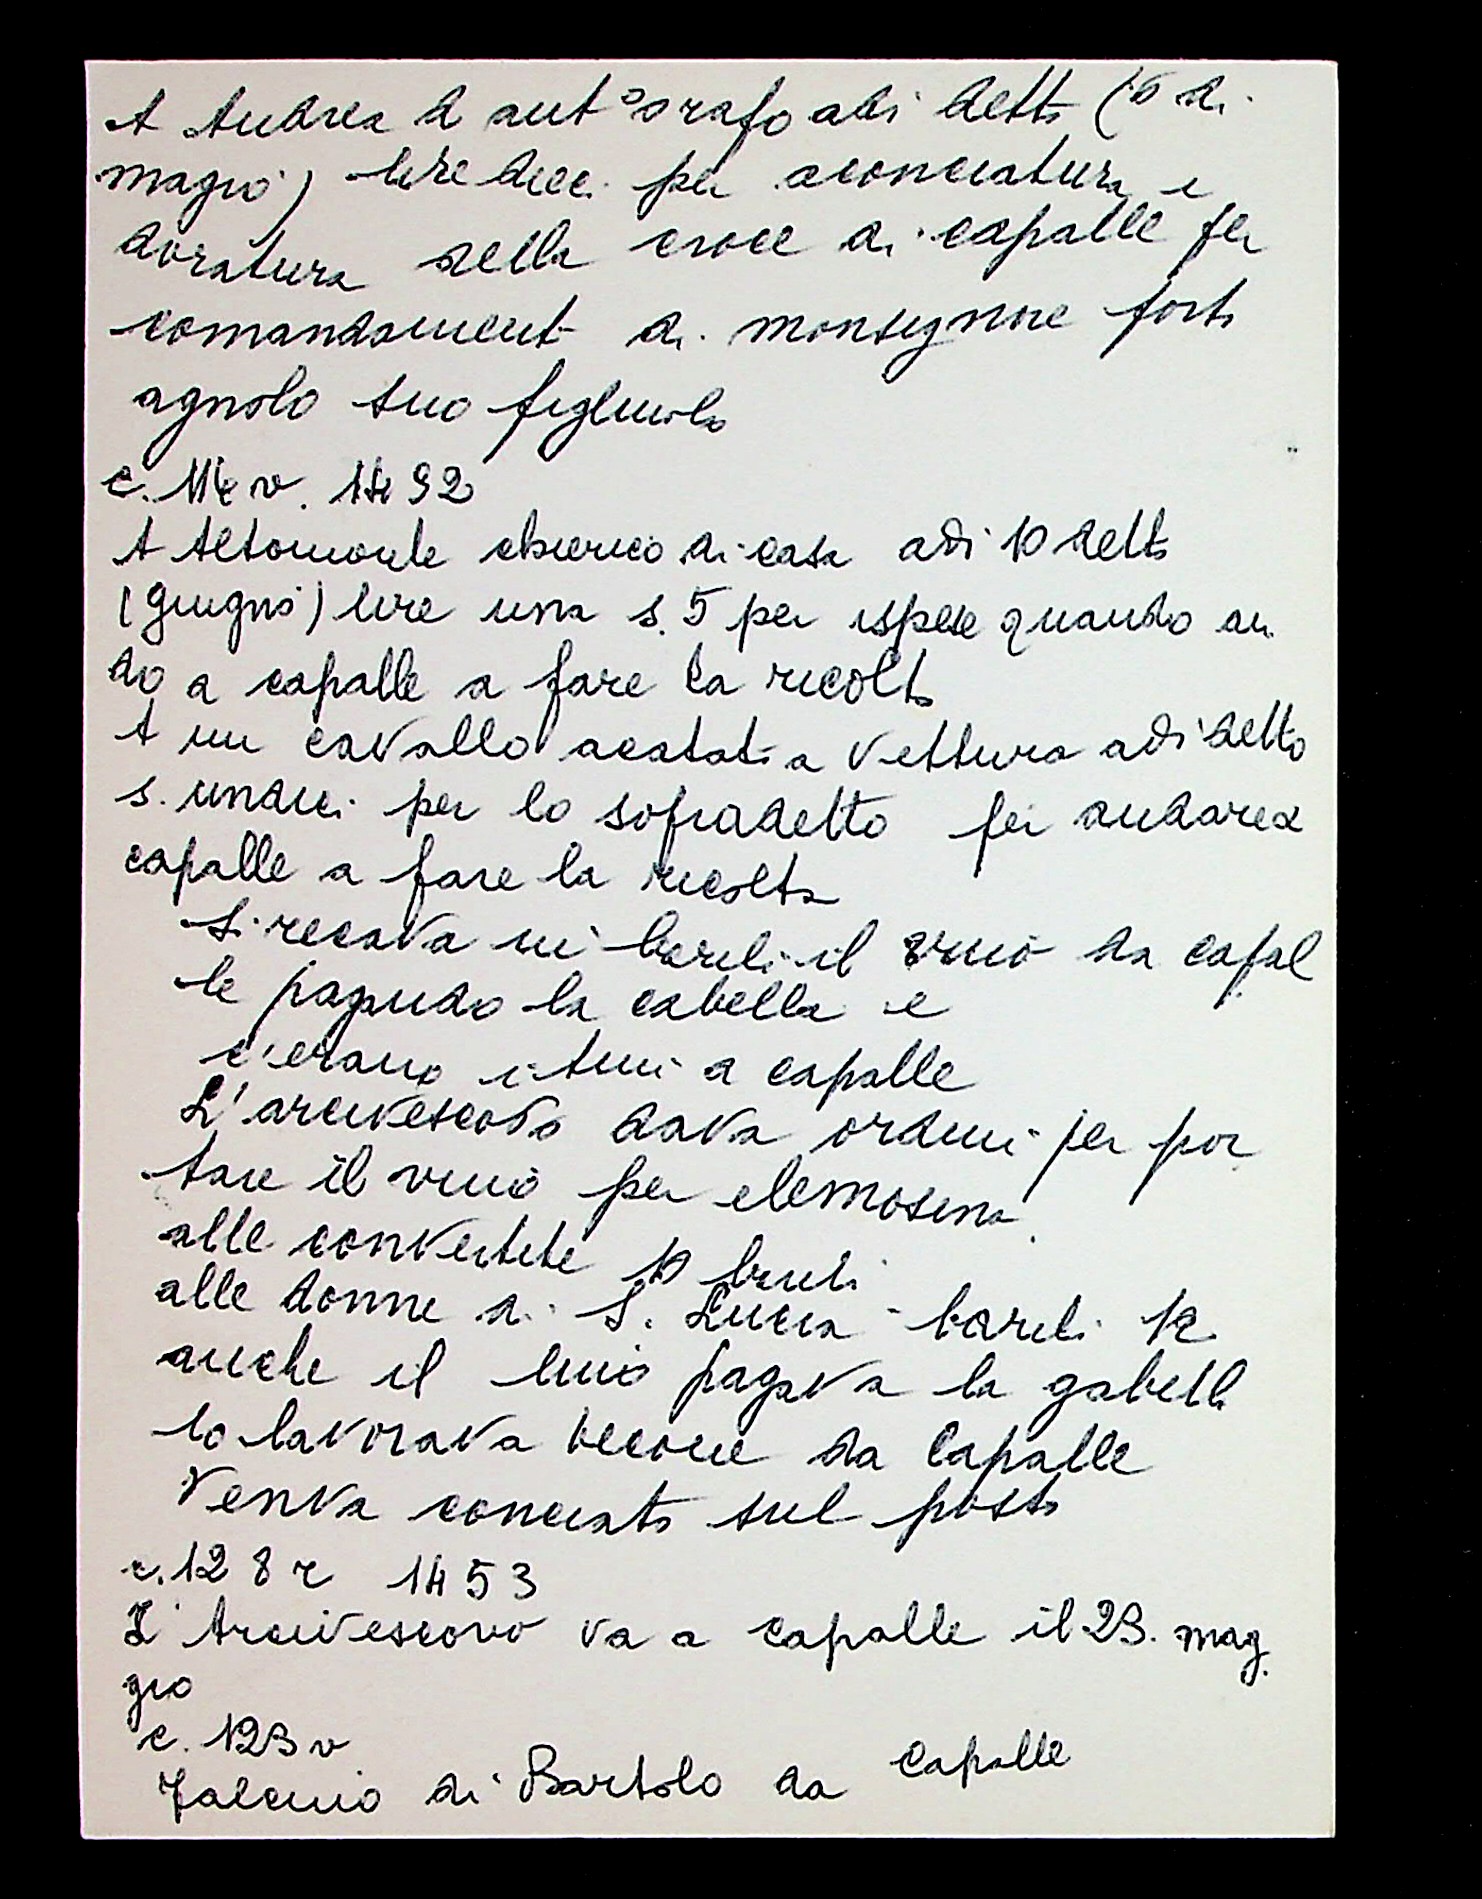 A Andrea d'ant° orafo adi detto (16 di
magio) lire dieci per aconciatura e
doratura della croce di capalle per
comandamento di monsignore portò
agnolo suo figliuolo
c. 114 v. 1492
A Altomonte chierico di casa adi 10 detto
(giugno) lire una s. 5 per ispese quando an
dò a capalle a fare la ricolta
A un cavallo acatato a vettura adi detto
s. undici per lo sopradetto per andare a
capalle a fare la ricolta
Si recava in barili il vino da capal
le pagando la cabella e
c'erano i tini a capalle
L'arcivescovo dava ordini per por
tare il vino per elemosina
alle convertite 10 barili
alle donne di S. Lucia barili 12
anche il lino pagava la gabella
lo lavorava da Capalle
Veniva conciato sul posto
c. 128 r 1453
L'Arcivescovo va a capalle il 23 mag
gio
c. 123 v
di Bartolo da Capalle